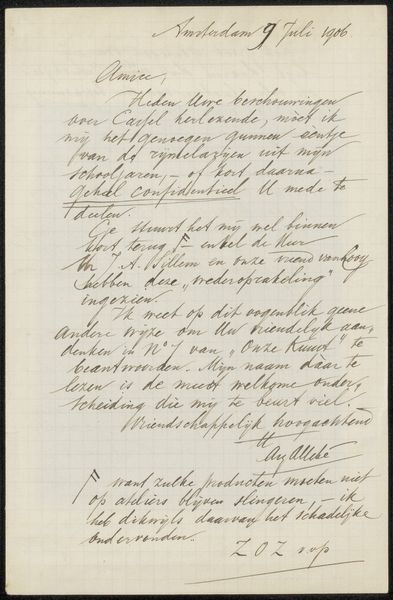 Amsterdam 9 Juli 1906
Amice,
Heden Uwe beschouwingen
over Carel herlezende, moet ik
mij het genoegen gunnen eentje
van de rijmelarijen uit mijn
schooljaren, – of kort daarna –
geheel confidentieel U mede te
deelen.
Ge stuurt het mij wel binnen
kort terug – enkel de Heer
Mr J. A. Sillem en onze vriend van Looy
hebben deze „wederoprakeling"
ingezien.
Ik weet op dit oogenblik geene
andere wijze om Uw vriendelijk aan-
denken in No 7 van „Onze Kunst" te
beantwoorden. Mijn naam dáár te
lezen is de meest welkome onder-
scheiding die mij te beurt viel.
Vriendschappelijk hoogachtend
Aug Allebé
want zulke producten moeten niet
op ateliers blijven slingeren, – ik
heb dikwijls daarvan het schadelijke
ondervonden.
Z O Z s.v.p